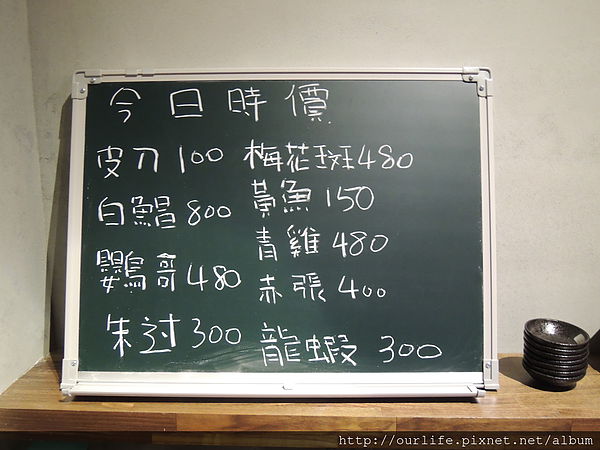 今日時價
皮刀 100 梅花斑 480
白鯧 800 黃魚 150
鸚鳥哥 480 青雞 480
朱过 300 赤張 400
龍蝦 300
http://ourlife.pixnet.net/album